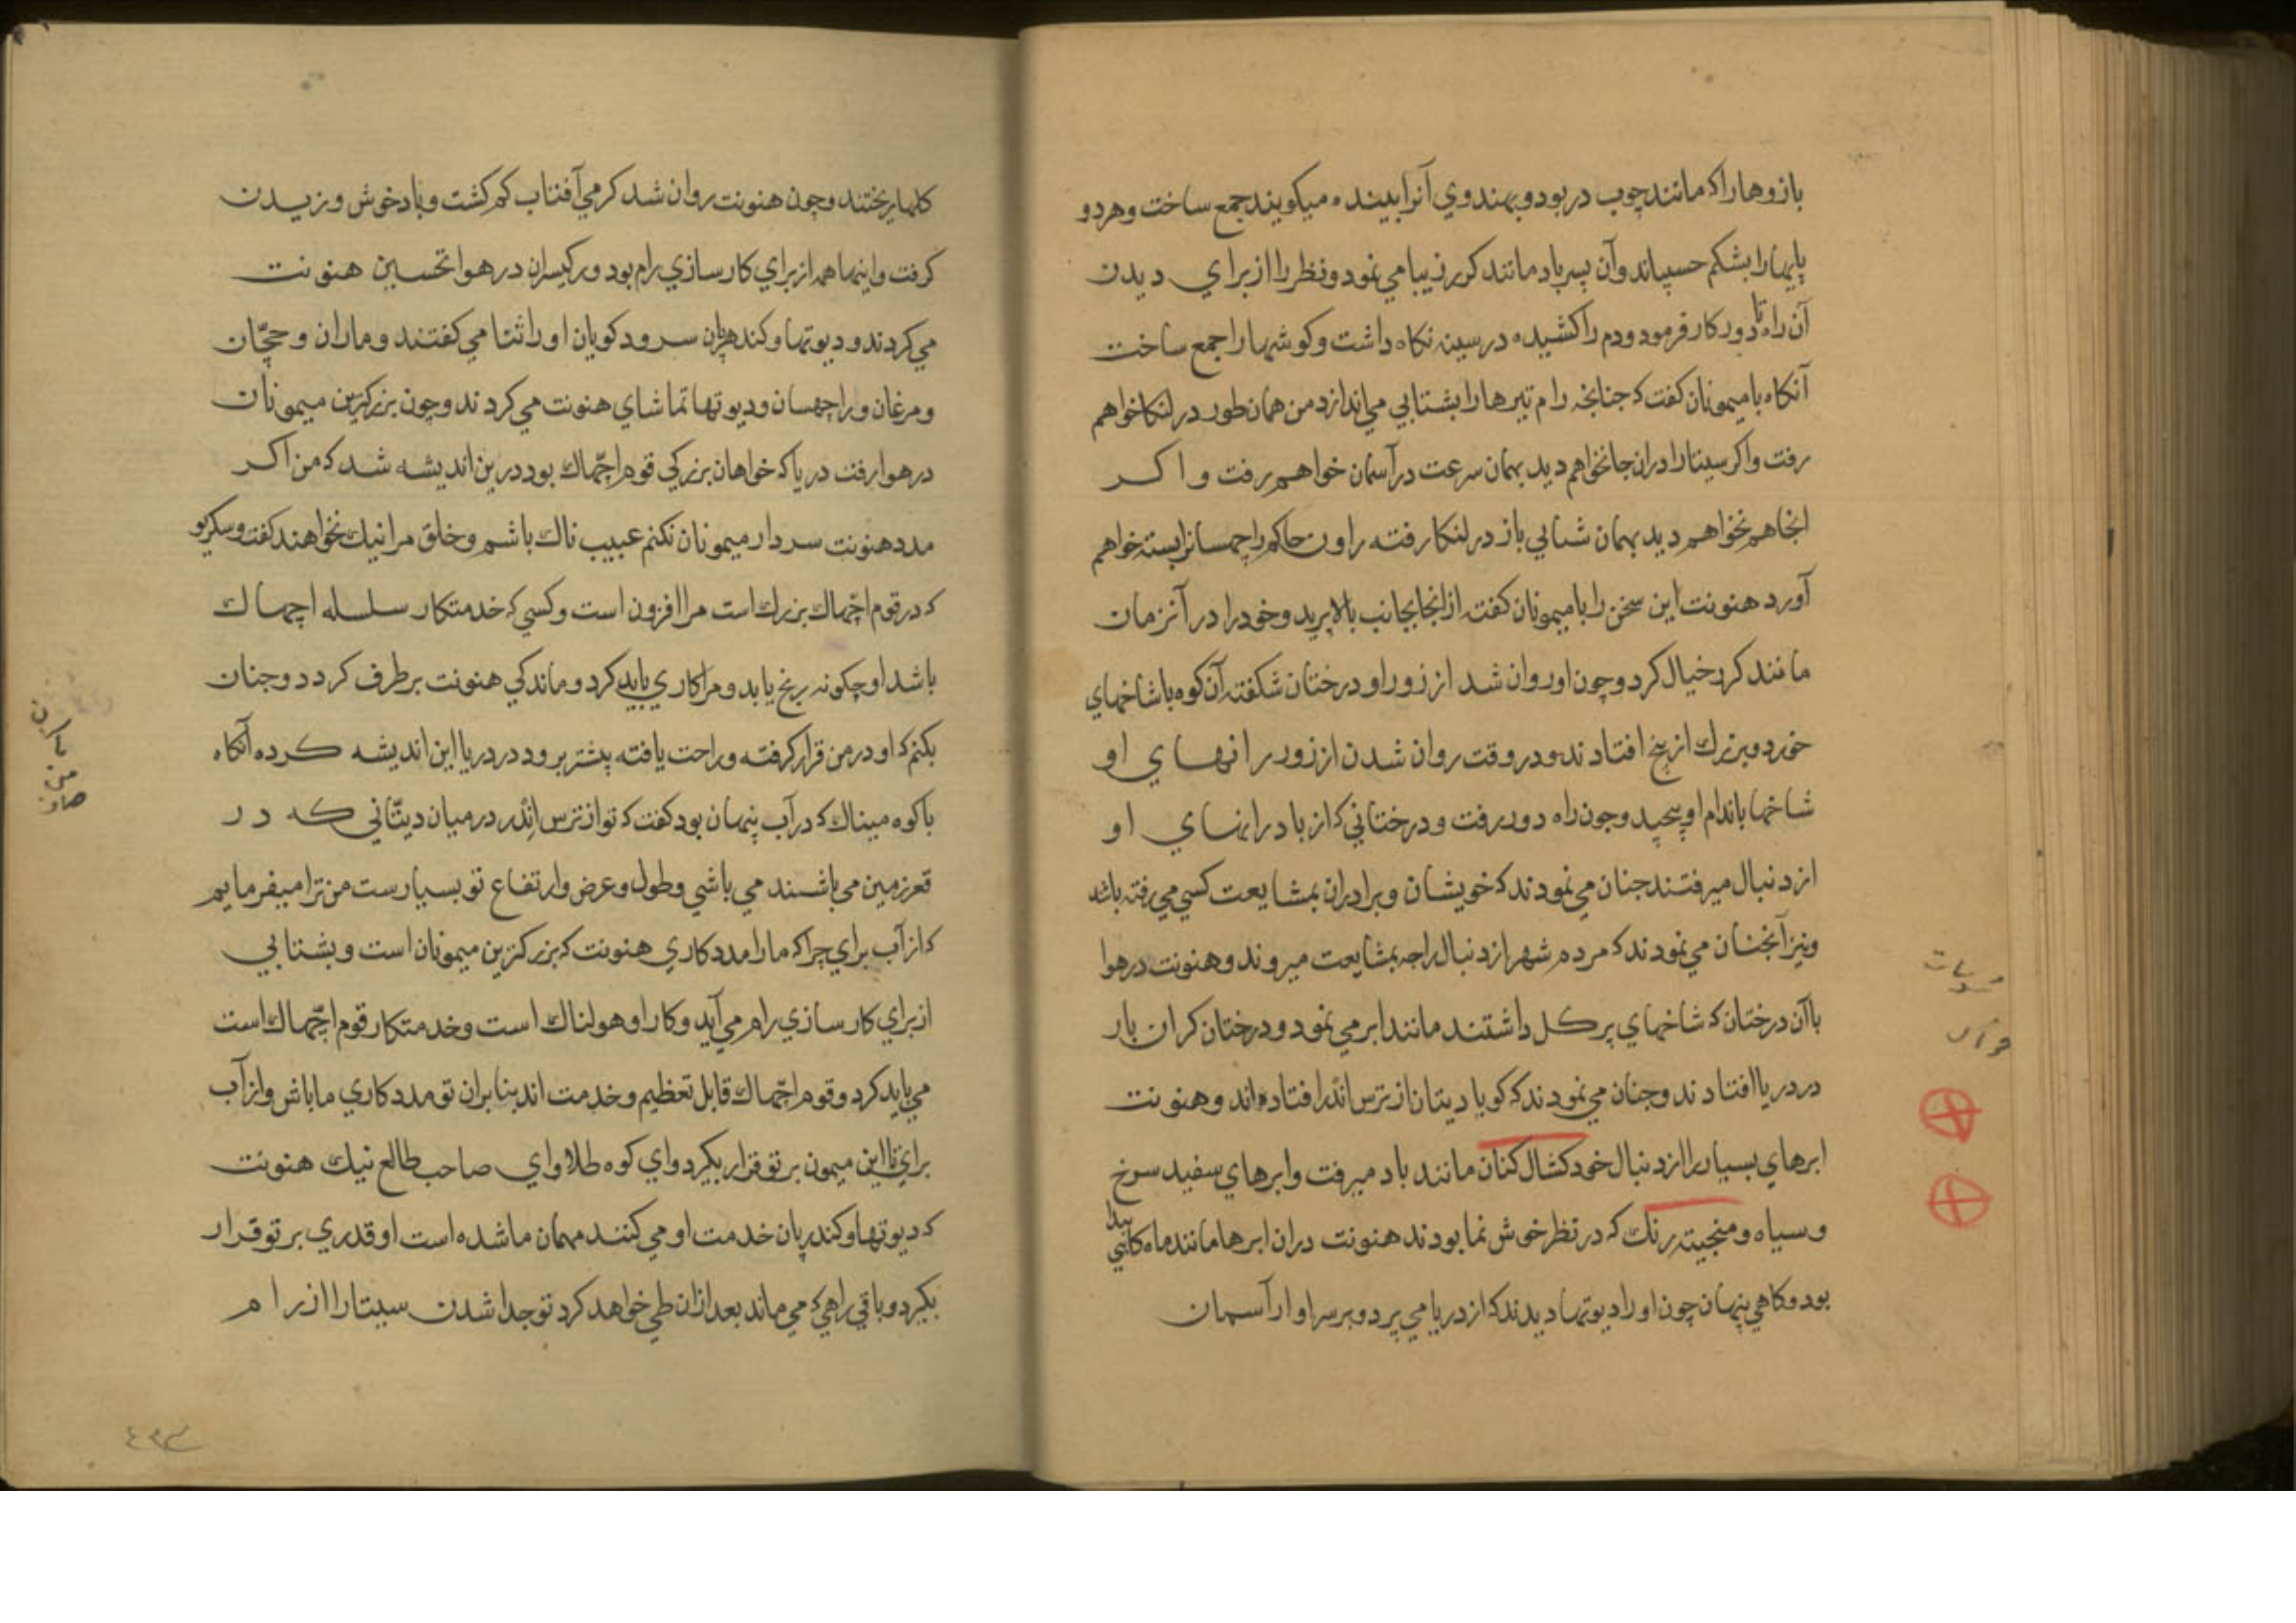 بازوها را که مانند چوب در بود و بهندوي آنرا بینده میکویند جمع ساخت و هر دو
پایها را بشکم حسپاند و آن پسر باد مانند کرر زیبا مي نمود و نظر را از براي دیدن
آن راه تا دور کار فرمود و دم را کشیده در سینه نکاه داشت و کوشها را جمع ساخت
آنکاه با میمونان کفت که جنانجه رام تیرها را بشتابي مي اندازد من همان طور در لنکا خواهم
رفت و اکر سیتا را دران جا نخواهم دید بهمان سرعت در آسمان خواهم رفت و اکر
انجا هم نخواهم دید بهمان شتابي باز در لنکا رفته راون حاکم راچهسانرا بسته خواهم
آورد هنونت این سخن را با میمونان کفته از انجا بجانب بالا پرید و خود را در آنزمان
مانند کرر خیال کرد و چون او روان شد از زور او درختان شکفته آن کوه با شاخهاي
خورد و بزرك از بیخ افتادند و در وقت روان شدن از زور رانهاي او
شاخها باندام او پیچید و جون راه دور رفت و درختاني که از باد رانهاي او
از دنبال میرفتند جنان مي نمودند که خویشان و برادران بمشایعت کسي مي رفته باشد
و نیز آنجنان مي نمودند که مردم شهر از دنبال راجه بمشایعت میروند و هنونت در هوا
با آن درختان که شاخهاي پر کل داشتند مانند ابر مي نمود و درختان کران بار
در دریا افتادند و جنان مي نمودند که کویا دیتان از ترس اندر افتاده اند و هنونت
ابرهاي بسیار را از دنبال خود کشال کنان مانند باد میرفت و ابرهاي سفید سرخ
و سیاه و منجیته رنك که در نظر خوش نما بودند هنونت دران ابرها مانند ماه کاهي پیدا
بود و کاهي پنهان چون او را دیوتها دیدند که از دریا مي پرد و بر سر او از آسمان
کلها ریختند و چون هنونت روان شد کرمي آفتاب کم کشت و باد خوش وزیدن
کرفت و اینها همه از براي کارسازي رام بود و رکیسران در هوا تحسین هنونت
مي کردند و دیوتها و کندهرپان سرود کویان او را ثنا مي کفتند و ماران و ججّان
و مرغان و راچهسان و دیوتها تماشاي هنونت مي کردند و چون بزرکترین میمونان
در هوا رفت دریا که خواهان بزرکي قوم اچّهاك بود درین اندیشه شد که من اکر
مدد هنونت سردار میمونان نکنم عیب ناك باشم و خلق مرا نیك نخواهند کفت و سکریو
که در قوم اچّهاك بزرك است مرا افزون است و کسي که خدمتکار سلسله اچهاك
باشد او چکونه رنج یابد و مرا کاري باید کرد و ماندکي هنونت برطرف کردد و جنان
بکنم که او در من قرار کرفته و راحت یافته پشتر برود در دریا این اندیشه کرده آنکاه
با کوه میناك که در آب پنهان بود کفت که تو از ترس اندر در میان دیتّاني که در
قعر زمین مي باشند مي باشي و طول و عرض و ارتفاع تو بسیارست من ترا میفرمایم
که از آب براي چرا که ما را مددکاري هنونت که بزرکترین میمونان است و بشتابي
از براي کارسازي رام مي آید و کار او هولناك است و خدمتکار قوم اچّهاك است
مي باید کرد و قوم اچّهاك قابل تعظیم و خدمت اند بنابران تو مددکاري ما باش و از آب
براي تا این میمون بر تو قرار بکیرد واي کوه طلا واي صاحب طالع نیك هنونت
که دیوتها و کندرپان خدمت او مي کنند مهمان ما شده است او قدري بر تو قرار
بکیرد و باقي راهي که مي ماند بعد ازان طي خواهد کرد تو جدا شدن سیتا را از رام